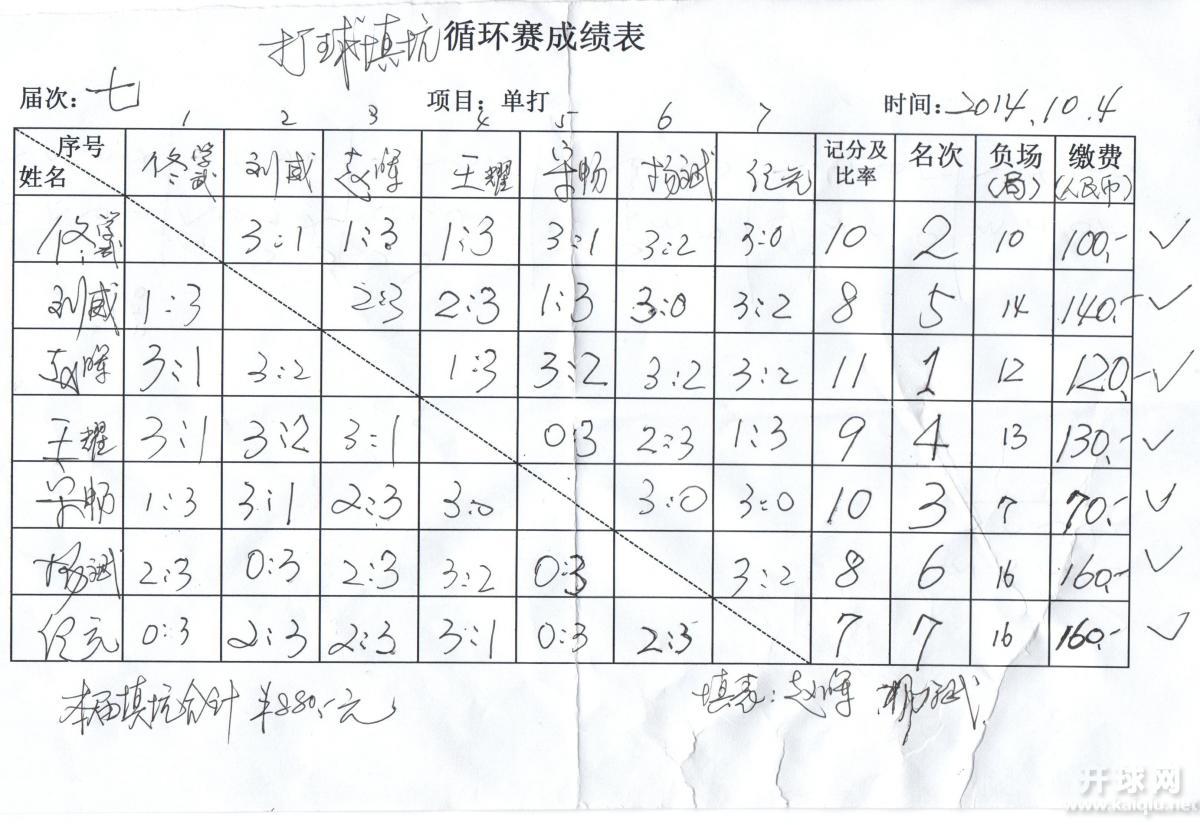 打球填坑循环赛成绩表
届次：七 项目：单打 时间：2014.10.4
1 2 3 4 5 6 7
序号 姓名 佟学武 刘威 赵晖 王耀 宋畅 杨斌 纪元 记分及比率 名次 负场(局) 缴费(人民币)
佟学武 3:1 1:3 1:3 3:1 3:2 3:0 10 2 10 100.- ✓
刘威 1:3 2:3 2:3 1:3 3:0 3:2 8 5 14 140.- ✓
赵晖 3:1 3:2 1:3 3:2 3:2 3:2 11 1 12 120.- ✓
王耀 3:1 3:2 3:1 0:3 2:3 1:3 9 4 13 130.- ✓
宋畅 1:3 3:1 2:3 3:0 3:0 3:0 10 3 7 70.- ✓
杨斌 2:3 0:3 2:3 3:2 0:3 3:2 8 6 16 160.- ✓
纪元 0:3 2:3 2:3 3:1 0:3 2:3 7 7 16 160.- ✓
本届填坑合计 ¥880.-元 填表：赵晖
开球网
www.kaiqiu.net